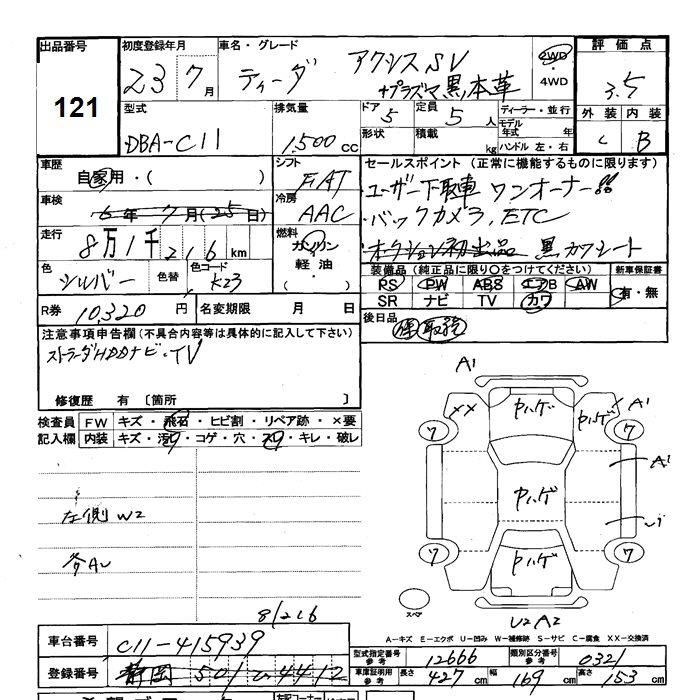 出品番号 初度登録年月 車名・グレード 評価点
121
23 7月 ティーダ アクシスSV
+プラズマ黒本革
2WD
4WD
3.5
型式 排気量 ドア 定員 ディーラー・並行 外装 内装
DBA-C11 1,500cc 5 5人 モデル年式 年
形状 積載 kg ハンドル 左・右 C B
車歴 シフト セールスポイント(正常に機能するものに限ります)
自家用・( ) FAT ユーザー下取車 ワンオーナー!!
車検 冷房
6年7月(25日) AAC バックカメラ,ETC
走行 燃料
8万1千216km ガソリン オークション初出品 黒カワシート
色 色替 色コード 軽油・( )
シルバー K23
装備品(純正品に限り○をつけてください) 新車保証書
PS PW ABS エアB AW 有・無
SR ナビ TV カワ
R券 10,320円 名変期限 月 日
後日品 保 取説
注意事項申告欄(不具合内容等は具体的に記入して下さい)
ストラーダHDDナビ・TV
修復歴 有〔箇所 〕
検査員記入欄
FW キズ・飛石・ヒビ割・リペア跡・×要
内装 キズ・汚レ・コゲ・穴・スレ・キレ・破レ
A1
XX ヤハゲ ヤハゲ A1
7 7
A1
ヤハゲ
左側W2
U1
7 7
ヤハゲ
各AU
スペア
U2A2
8/216
A-キズ E-エクボ U-凹み W-補修跡 S-サビ C-腐食 XX-交換済
車台番号 C11-415939
型式指定番号 参考 12666 類別区分番号 参考 0321
登録番号 静岡 501 4412
車庫証明用 参考 長さ 427cm 幅 169cm 高さ 153cm